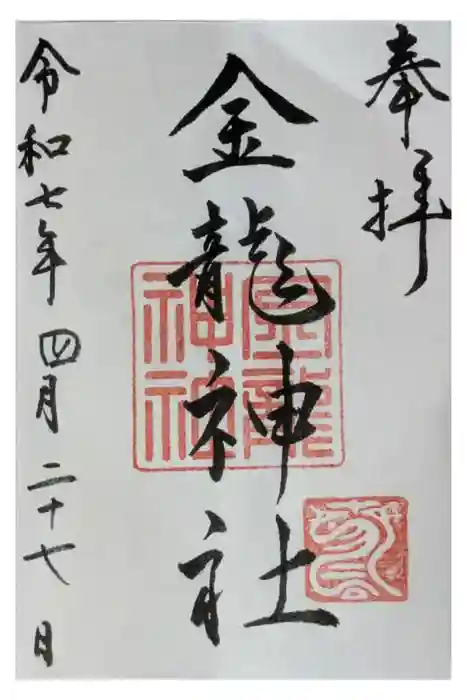 奉拝
金龍神社
金龍神社
令和七年四月二十七日